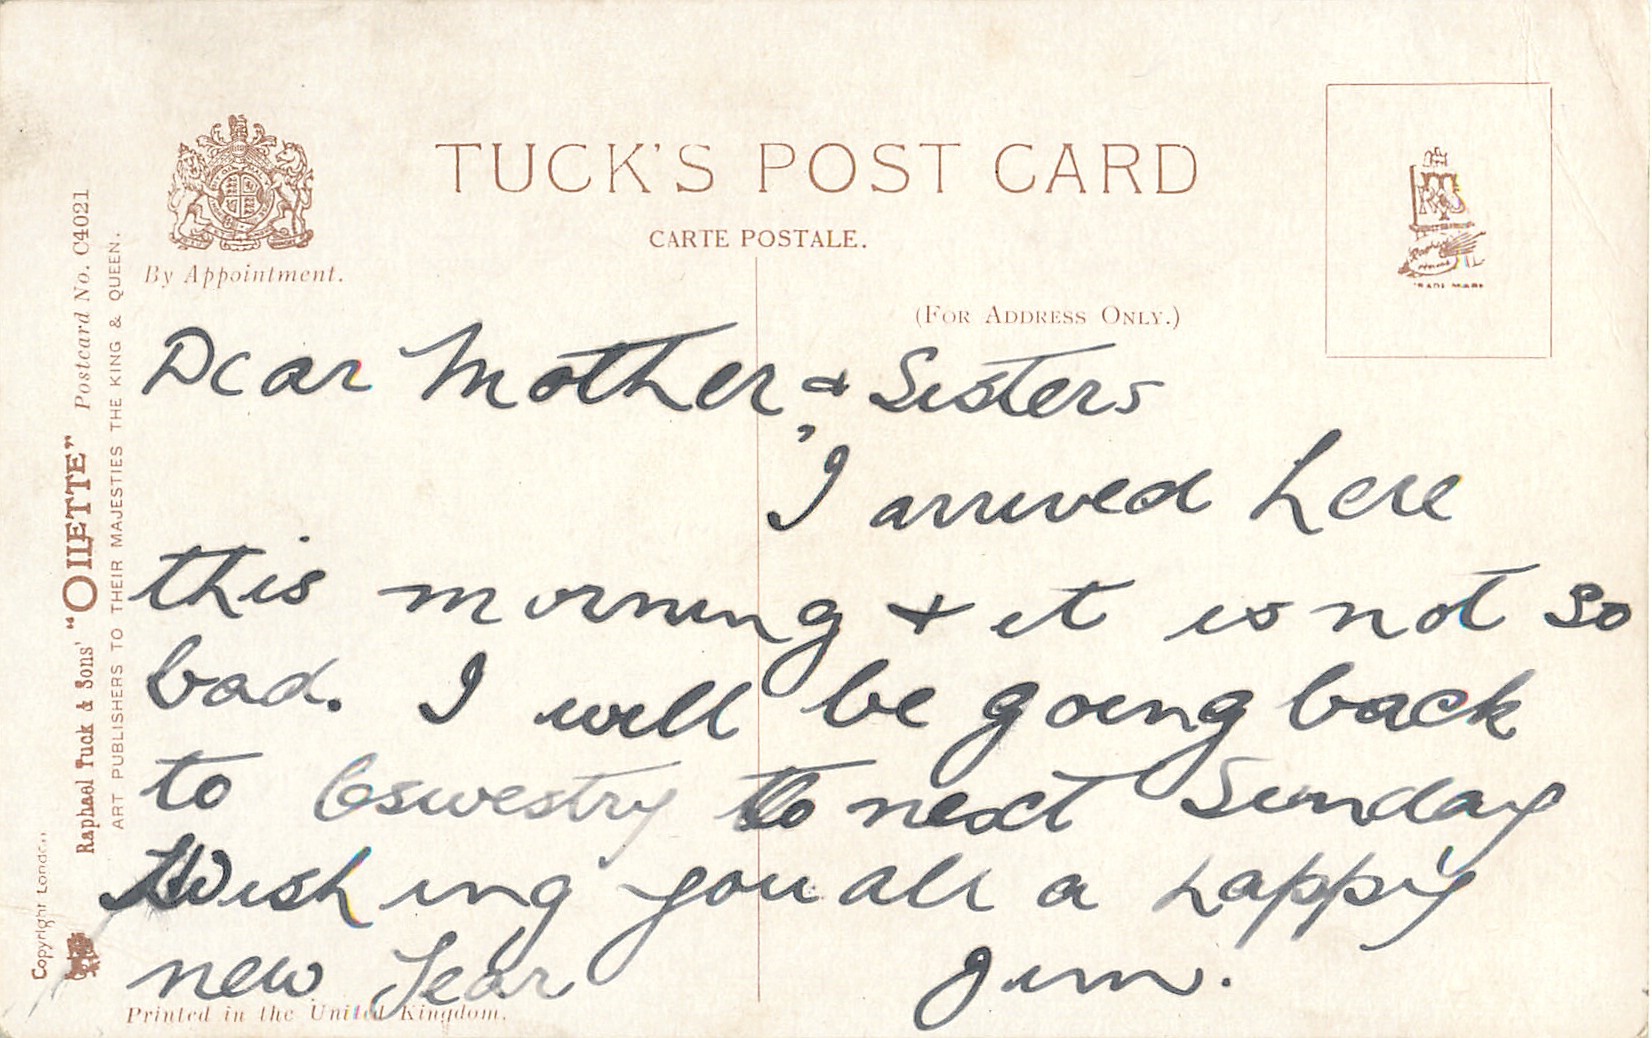 TUCK'S POST CARD
CARTE POSTALE.
By Appointment.
(FOR ADDRESS ONLY.)
Dear Mother & Sisters,
I arrived here
this morning & it is not so
bad. I will be going back
to Oswestry to next Sunday
Wishing you all a happy
new Year
Jim.
Printed in the United Kingdom.
Copyright London
Raphael Tuck & Sons' "OILETTE" Postcard No. C4021
ART PUBLISHERS TO THEIR MAJESTIES THE KING & QUEEN.